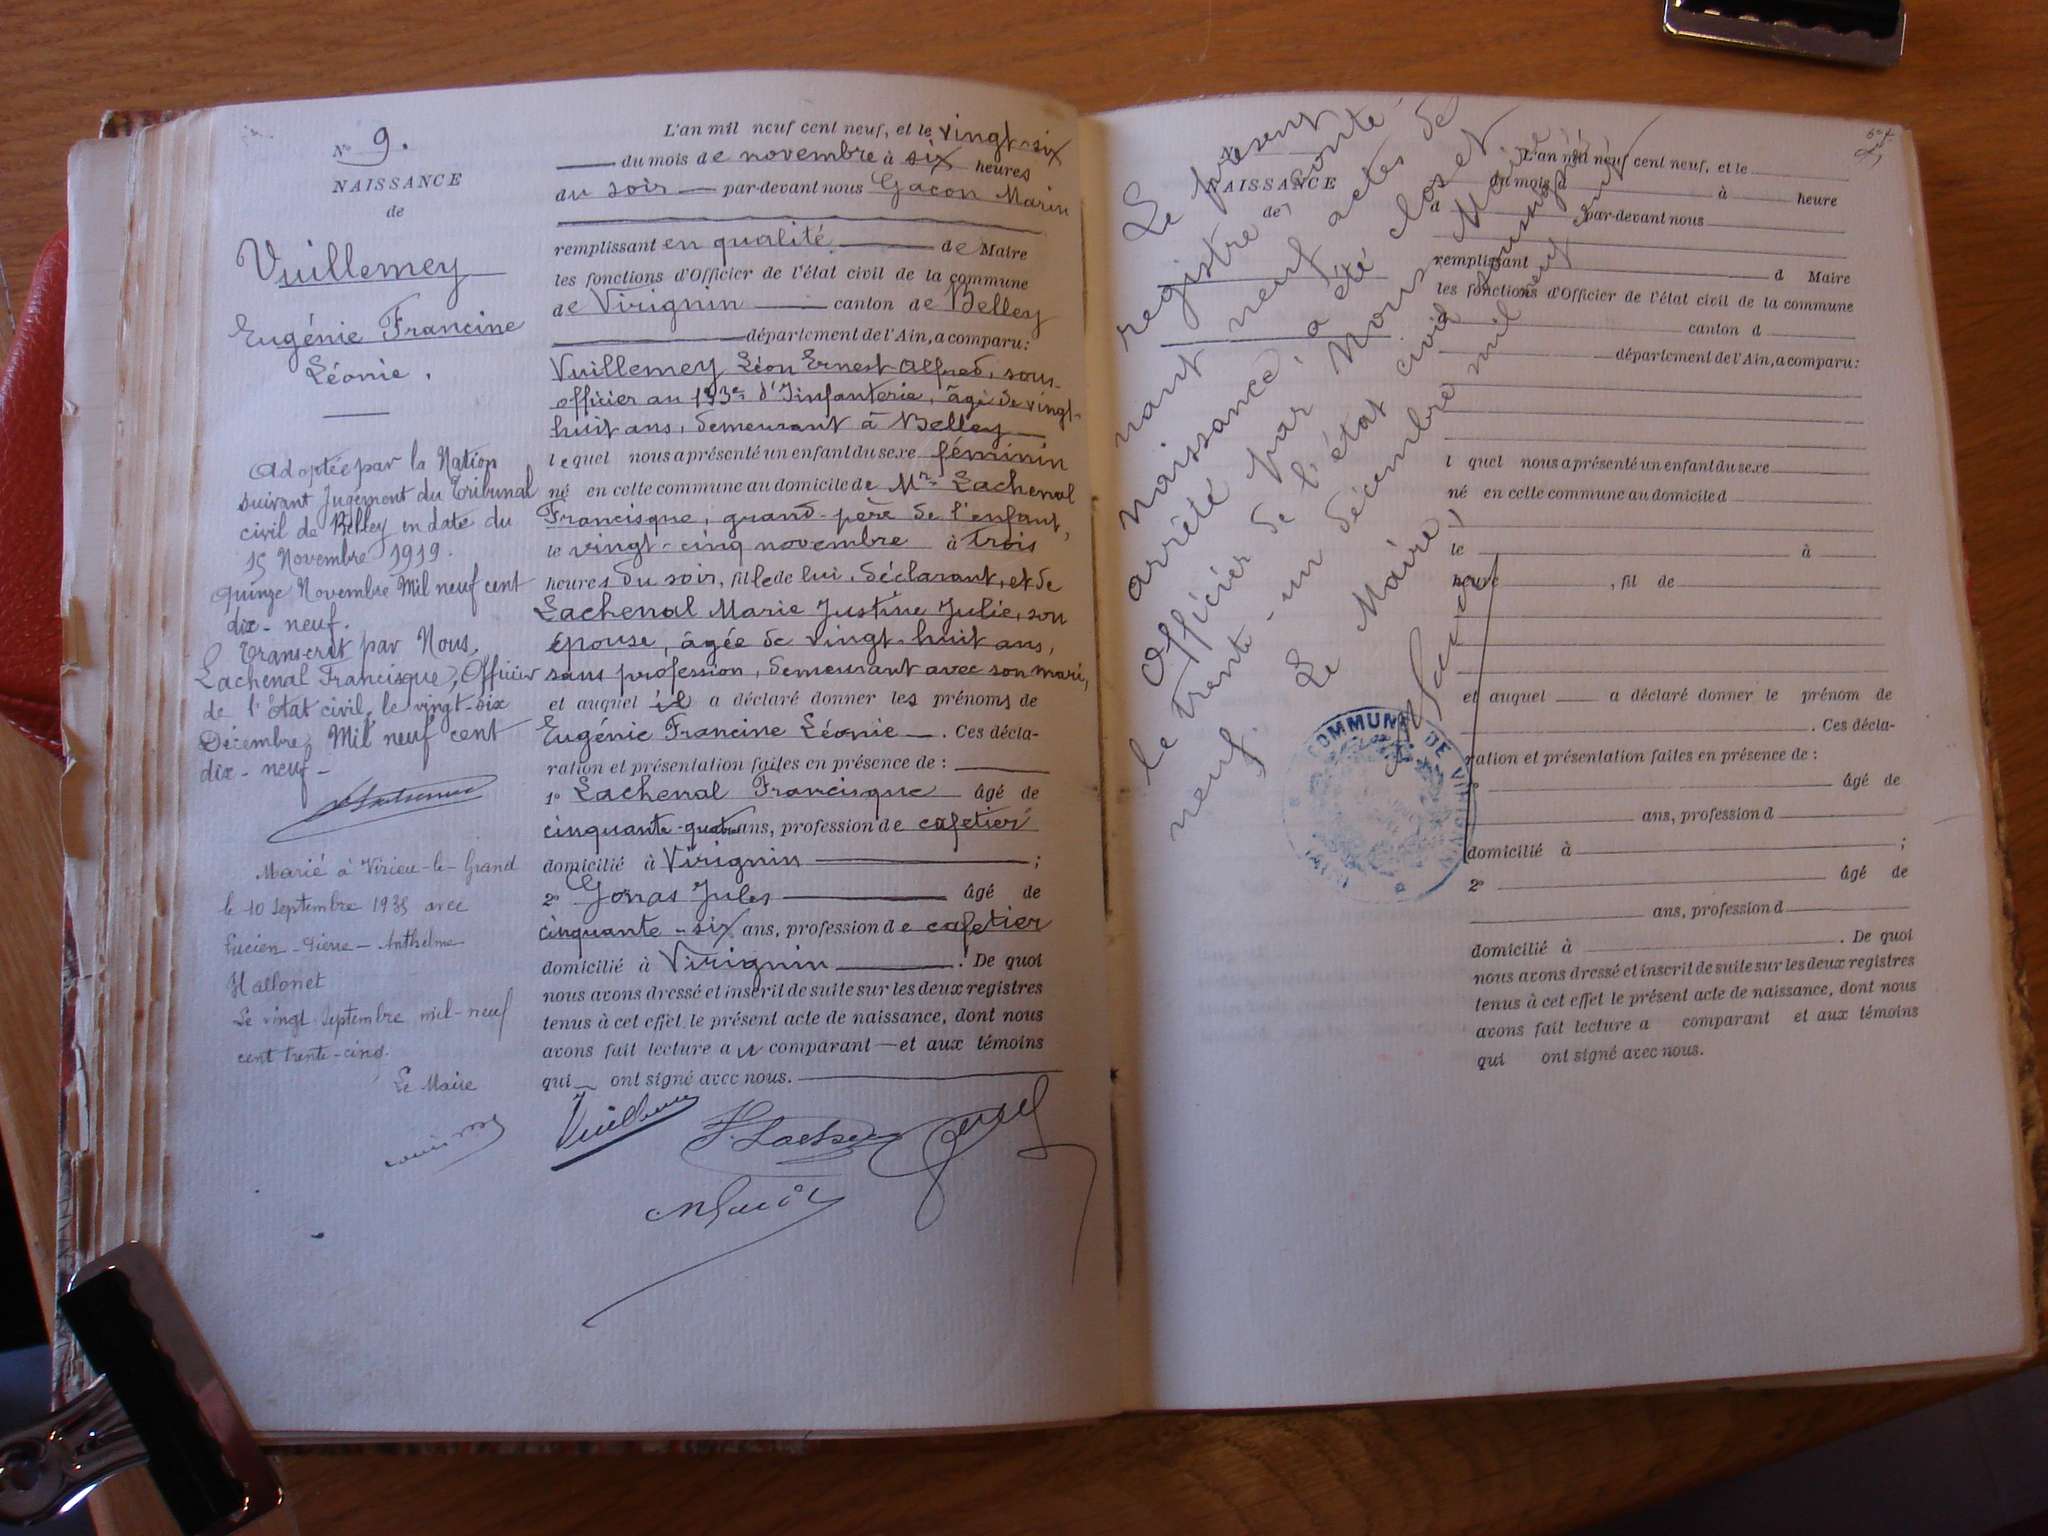 N° 9.
NAISSANCE
de
Vuillemey
Eugénie Francine
Léonie.
Adoptée par la Nation
suivant Jugement du Tribunal
civil de Belley en date du
15 Novembre 1919.
quinze Novembre Mil neuf cent
dix-neuf.
Transcrit par Nous,
Lachenal Francisque, Officier
de l'état civil, le vingt-six
Décembre, Mil neuf cent
dix-neuf-
Marié à Virieu-le-Grand
le 10 septembre 1935 avec
Lucien-Pierre-Anthelme
Hallonet
Le vingt septembre mil-neuf
cent trente-cinq.
Le Maire
L'an mil neuf cent neuf, et le vingt-six
du mois de novembre à six heures
du soir par-devant nous Gacon Marin
remplissant en qualité de Maire
les fonctions d'Officier de l'état civil de la commune
de Virignin canton de Belley
département de l'Ain, a comparu:
Vuillemey Léon Ernest Alfred, sous-
officier au 133e d'Infanterie, âgé de vingt-
huit ans, demeurant à Belley
lequel nous a présenté un enfant du sexe féminin
né en cette commune au domicile de Mr Lachenal
Francisque, grand-père de l'enfant,
le vingt-cinq novembre à trois
heures du soir, fille de lui, déclarant, et de
Lachenal Marie Justine Julie, son
épouse, âgée de vingt-huit ans,
sans profession, demeurant avec son mari,
et auquel il a déclaré donner les prénoms de
Eugénie Francine Léonie. Ces décla-
ration et présentation faites en présence de :
1° Lachenal Francisque âgé de
cinquante-quatre ans, profession de cafetier
domicilié à Virignin ;
2° Jonas Jules âgé de
cinquante-six ans, profession de cafetier
domicilié à Virignin. De quoi
nous avons dressé et inscrit de suite sur les deux registres
tenus à cet effet le présent acte de naissance, dont nous
avons fait lecture au comparant et aux témoins
qui ont signé avec nous.
Vuillemey
F. Lachenal
Le présent
registre, conte
nant neuf actes de
naissance, a été clos et
arrêté par Nous, Maire
Officier de l'état civil soussigné
le trente-un décembre mil neuf cent
neuf.
Le Maire,
COMMUNE DE VIRIGNIN
NAISSANCE
de
L'an mil neuf cent neuf, et le
du mois d à heure
d par-devant nous
remplissant d Maire
les fonctions d'Officier de l'état civil de la commune
d canton d
département de l'Ain, a comparu:
l quel nous a présenté un enfant du sexe
né en cette commune au domicile d
le à
heure , fil de
et auquel a déclaré donner le prénom de
. Ces décla-
ration et présentation faites en présence de :
1° âgé de
ans, profession d
domicilié à ;
2° âgé de
ans, profession d
domicilié à . De quoi
nous avons dressé et inscrit de suite sur les deux registres
tenus à cet effet le présent acte de naissance, dont nous
avons fait lecture a comparant et aux témoins
qui ont signé avec nous.